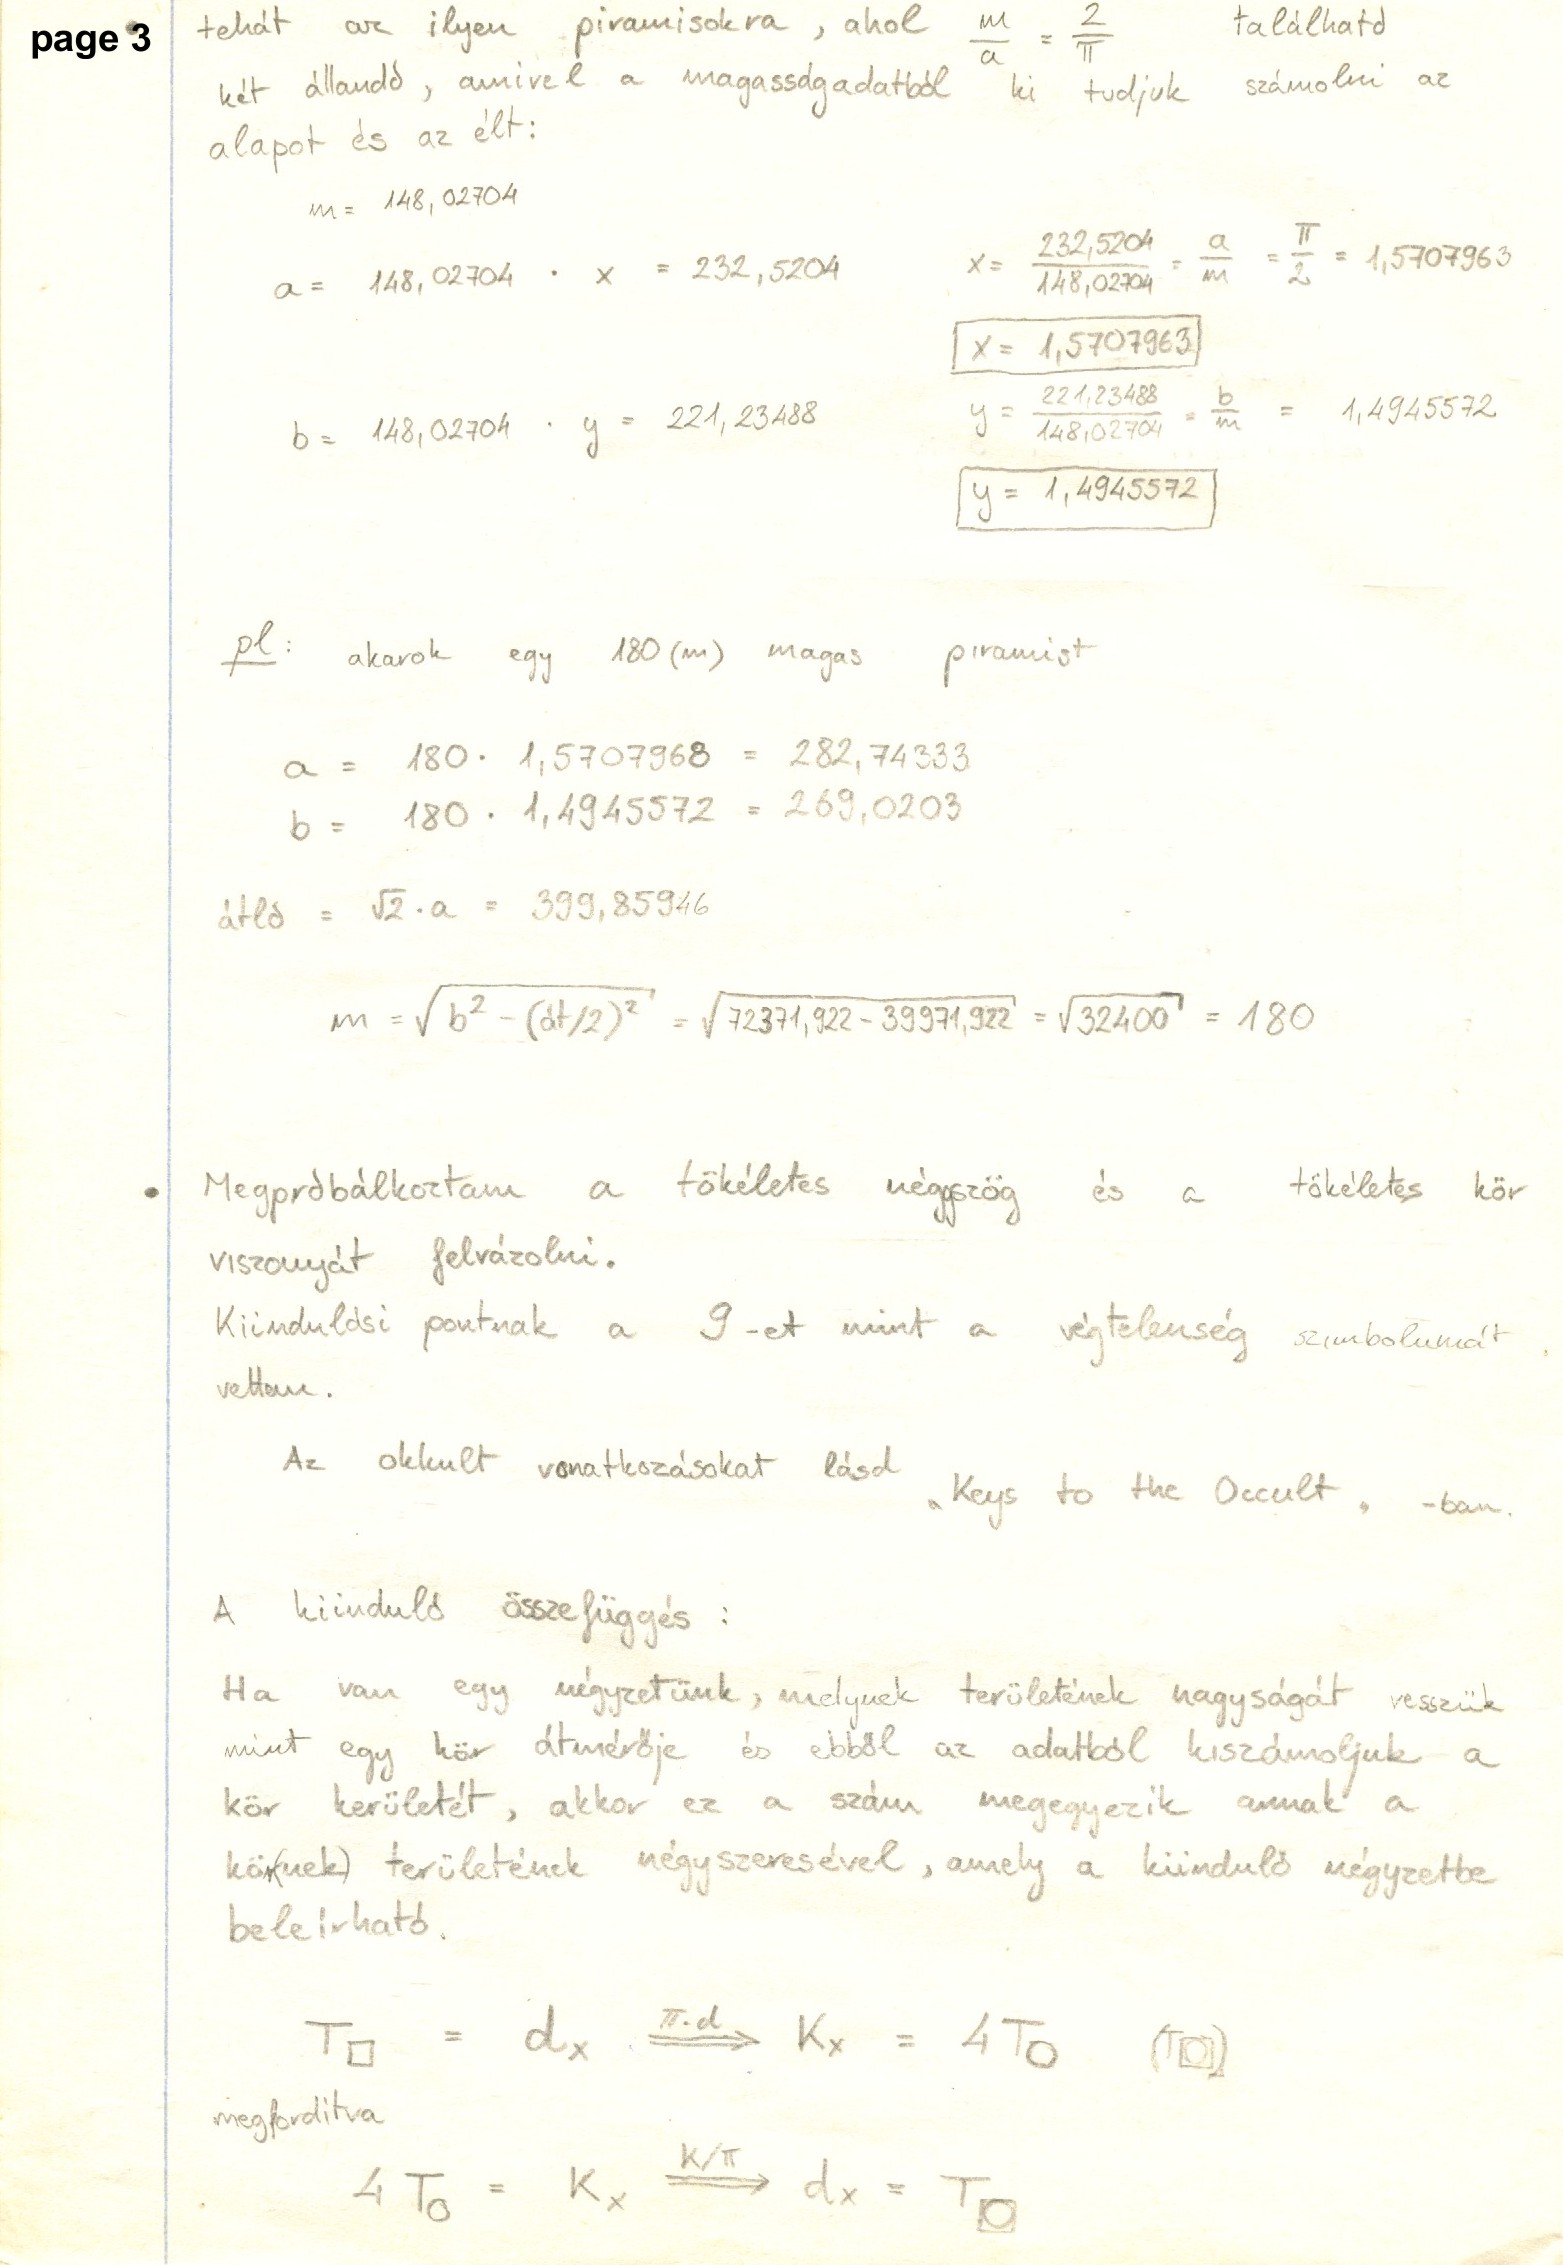 page 3
tehát az ilyen piramisokra, ahol m/a = 2/π található
két állandó, amivel a magasságadatból ki tudjuk számolni az
alapot és az élt:
m = 148,02704
a = 148,02704 · x = 232,5204 x = 232,5204/148,02704 = a/m = π/2 = 1,5707963
x = 1,5707963
b = 148,02704 · y = 221,23488 y = 221,23488/148,02704 = b/m = 1,4945572
y = 1,4945572
pl: akarok egy 180 (m) magas piramist
a = 180 · 1,5707968 = 282,74333
b = 180 · 1,4945572 = 269,0203
átló = √2 · a = 399,85946
m = √(b² - (át/2)²) = √(72371,922 - 39971,922) = √32400 = 180
• Megpróbálkoztam a tökéletes négyszög és a tökéletes kör
viszonyát felvázolni.
Kiindulási pontnak a 9-et mint a végtelenség szimbolumát
vettem.
Az okkult vonatkozásokat lásd
„Keys to the Occult„ -ban.
A kiinduló összefüggés :
Ha van egy négyzetünk, melynek területének nagyságát vesszük
mint egy kör átmérője és ebből az adatból kiszámoljuk a
kör kerületét, akkor ez a szám megegyezik annak a
kör(nek) területének négyszeresével, amely a kiinduló négyzetbe
beleírható.
T□ = dx =π·d=> Kx = 4T○ (T▢○)
megfordítva
4T○ = Kx =K/π=> dx = T▢○